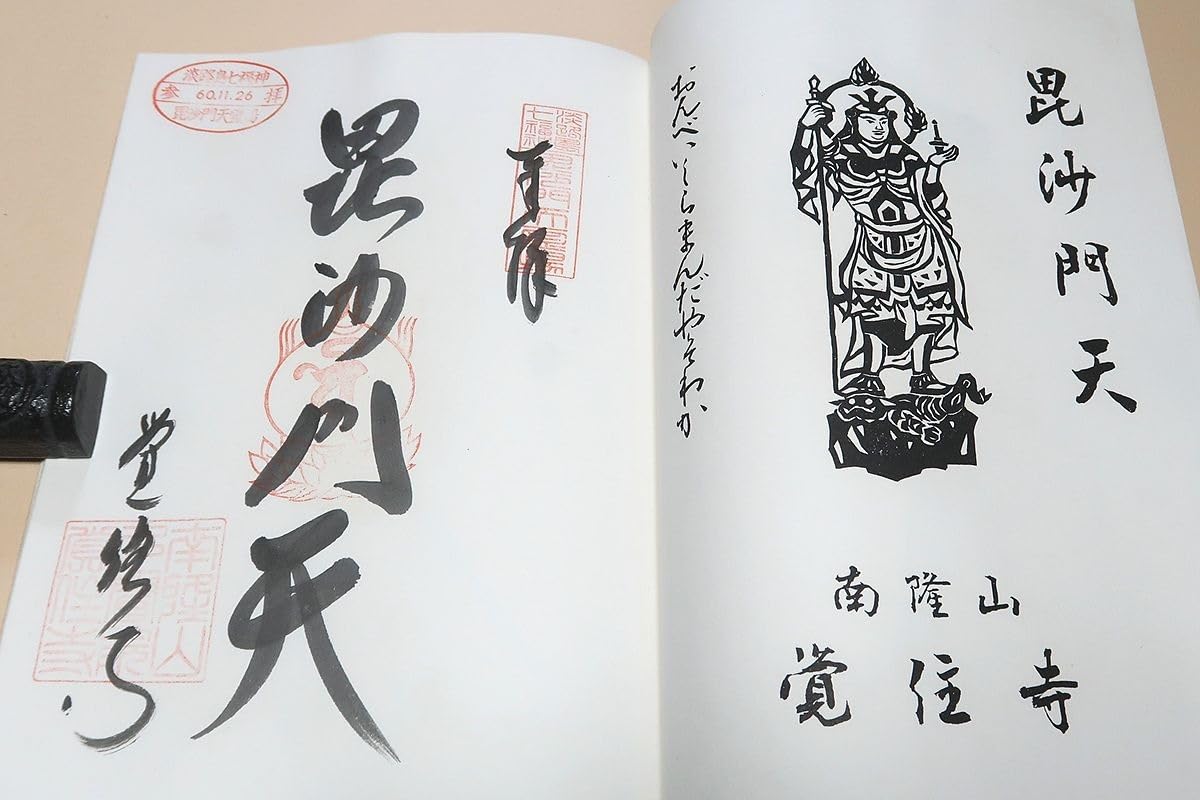 毘沙門天
おんべいしらまんだやそわか
南隆山
覚住寺
奉拝
毘沙門天
覚住寺
淡路島七福神
参 60.11.26 拝
毘沙門天
南隆山
覚住寺